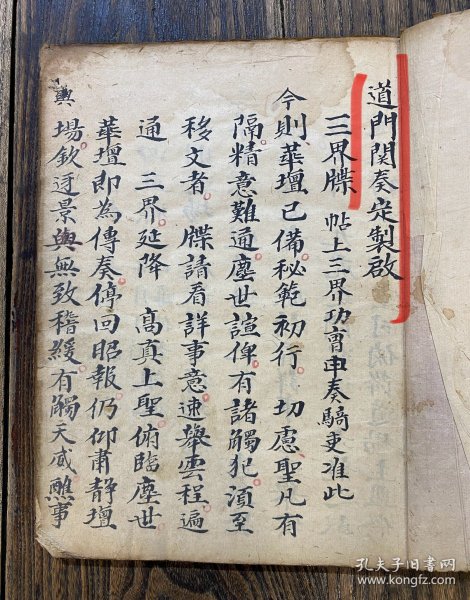 道門関奏定製啟
三界牒 帖上三界功曹申奏騎吏准此
今則華壇已備秘範初行切慮聖凡有
隔精意難通塵世諠俾有諸觸犯須至
移文者 牒請看詳事意速舉雲程遍
通 三界延降 高真上聖俯臨塵世
華壇即為傳奏停回昭報仍仰肅静壇
場欽迓景與無致稽緩有觸天威醮事
輿
孔夫子旧书网
www.kongfz.com